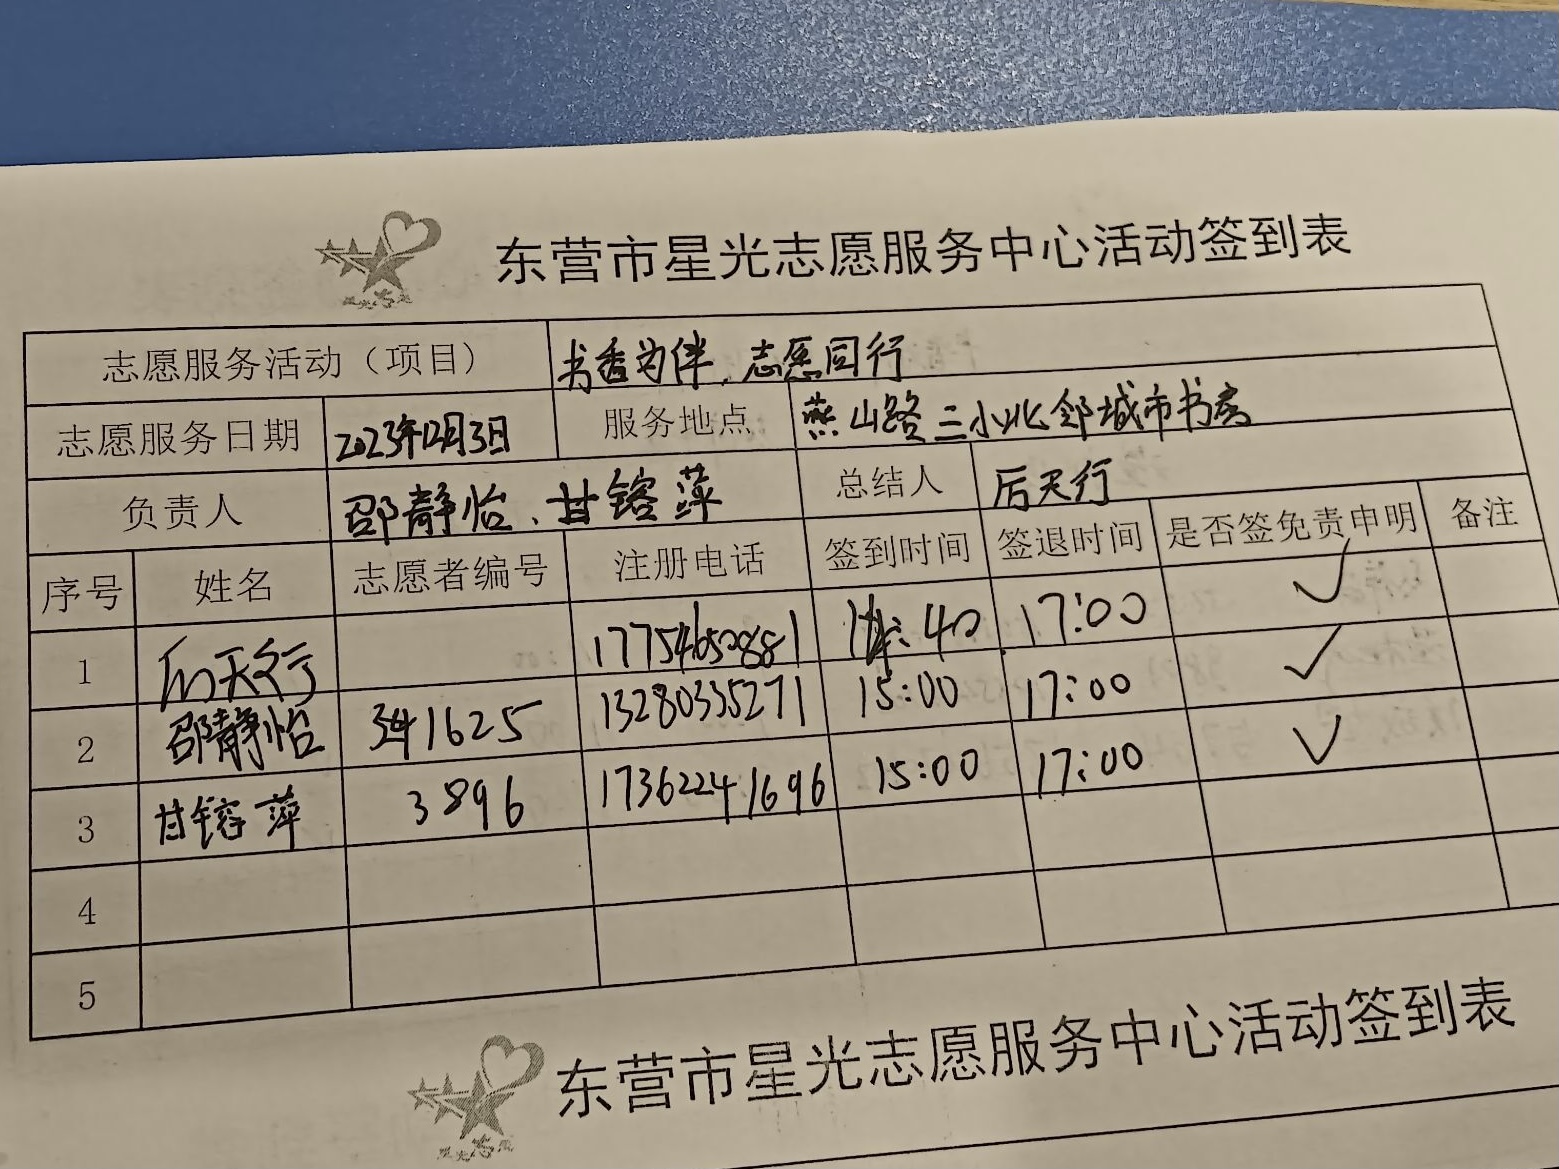 东营市星光志愿服务中心活动签到表
志愿服务活动（项目） 书香为伴，志愿同行
志愿服务日期 2023年12月3日 服务地点 燕山路三小北邻城市书房
负责人 邵静怡、甘镕萍 总结人 后天行
序号 姓名 志愿者编号 注册电话 签到时间 签退时间 是否签免责申明 备注
1 后天行 14:40 17:00 ✓
2 邵静怡 341625 13280335271 15:00 17:00 ✓
3 甘镕萍 3896 17362241696 15:00 17:00 ✓
4
5
东营市星光志愿服务中心活动签到表
星光志愿